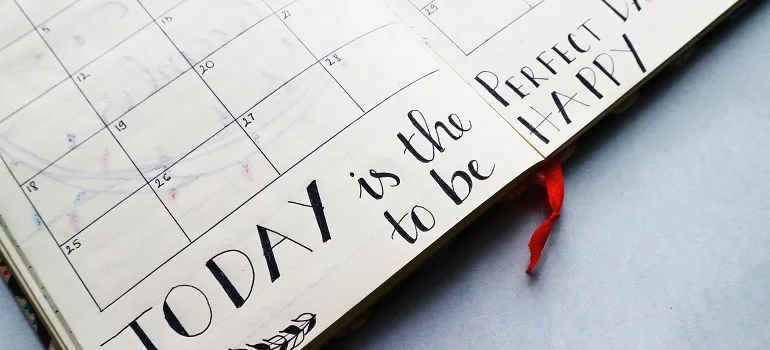 5
12 13
19 20 21
18 26 27 28
25
29
TODAY is the PERFECT
to be HAPPY